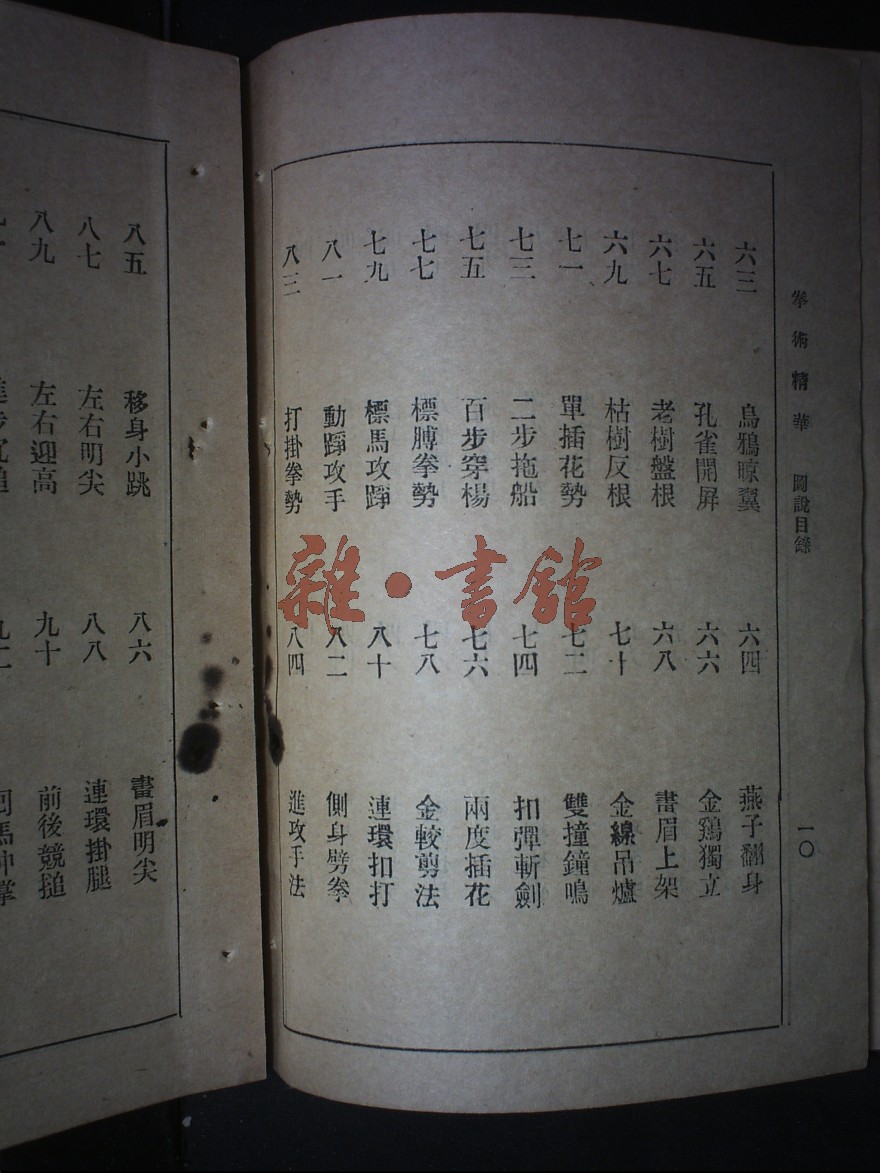 拳術精華 圖說目錄
一〇
六三 烏鴉晾翼 六四 燕子翻身
六五 孔雀開屏 六六 金鷄獨立
六七 老樹盤根 六八 畫眉上架
六九 枯樹反根 七十 金線吊爐
七一 單插花勢 七二 雙撞鐘鳴
七三 二步拖船 七四 扣彈斬劍
七五 百步穿楊 七六 兩度插花
七七 標膊拳勢 七八 金較剪法
七九 標馬攻踭 八十 連環扣打
八一 動踭攻手 八二 側身劈拳
八三 打掛拳勢 八四 進攻手法
雜·書館
八五 移身小跳 八六 畫眉明尖
八七 左右明尖 八八 連環掛腿
八九 左右迎高 九十 前後競搥